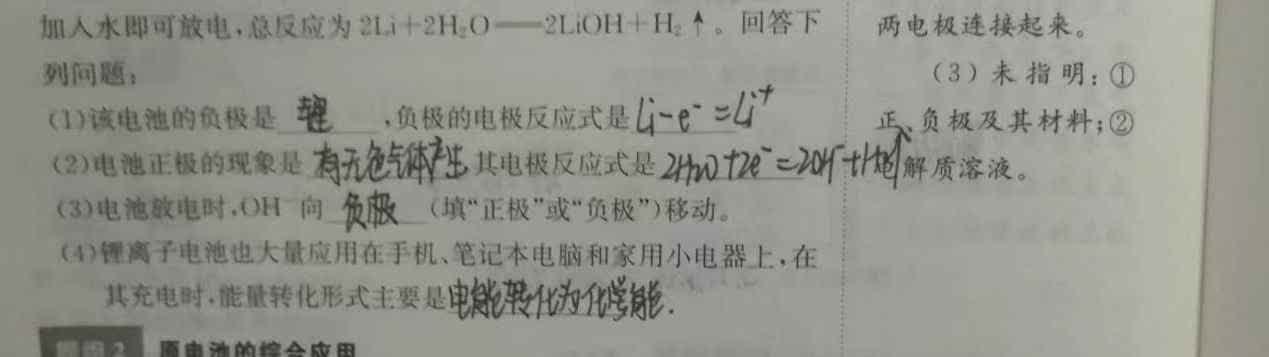 加入水即可放电,总反应为2Li+2H₂O══2LiOH+H₂↑。回答下
列问题:
(1)该电池的负极是 锂 ,负极的电极反应式是 Li-e⁻=Li⁺
(2)电池正极的现象是 有无色气体产生 其电极反应式是 2H₂O+2e⁻=2OH⁻+H₂↑
(3)电池放电时,OH⁻向 负极 (填“正极”或“负极”)移动。
(4)锂离子电池也大量应用在手机、笔记本电脑和家用小电器上,在
其充电时,能量转化形式主要是 电能转化为化学能.
2 原电池的综合应用
两电极连接起来。
(3)未指明:①
正、负极及其材料;②
电解质溶液。